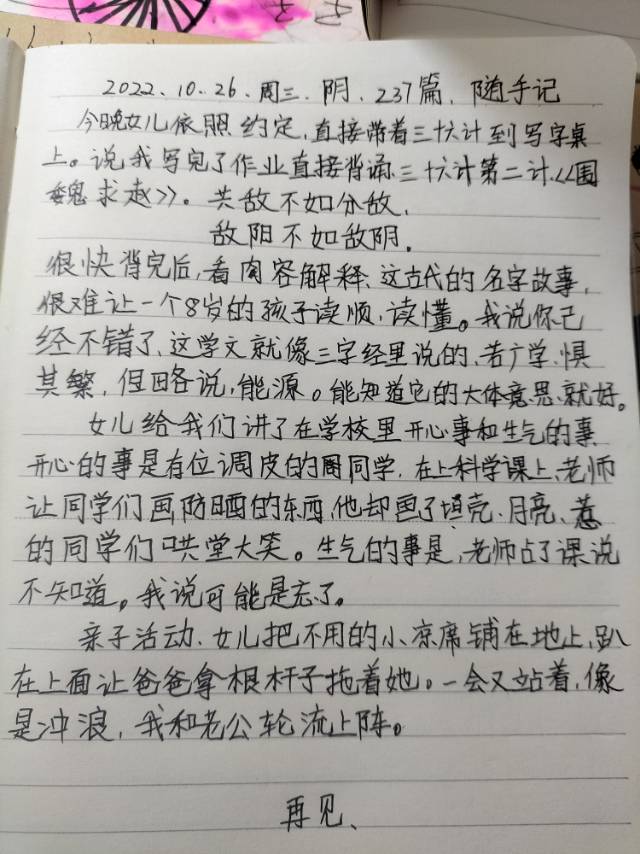 2022.10.26.周三.阴.237篇.随手记
今晚女儿依照约定,直接带着三十六计到写字桌
上。说我写完了作业直接背诵三十六计第二计.《围
魏求赵》。共敌不如分敌,
敌阳不如敌阴.
很快背完后,看内容解释、这古代的名字故事,
很难让一个8岁的孩子读顺,读懂。我说你已
经不错了、这学文就像三字经里说的、若广学、惧
其繁,但略说,能源。能知道它的大体意思、就好。
女儿给我们讲了在学校里开心事和生气的事
开心的事是有位调皮的周同学.在上科学课上、老师
让同学们画防晒的东西,他却画了坦克、月亮、惹
的同学们哄堂大笑。生气的事是,老师占了课说
不知道。我说可能是忘了。
亲子活动、女儿把不用的小凉席铺在地上,趴
在上面让爸爸拿根杆子拖着她。一会又站着,像
是冲浪,我和老公轮流上阵。
再见、